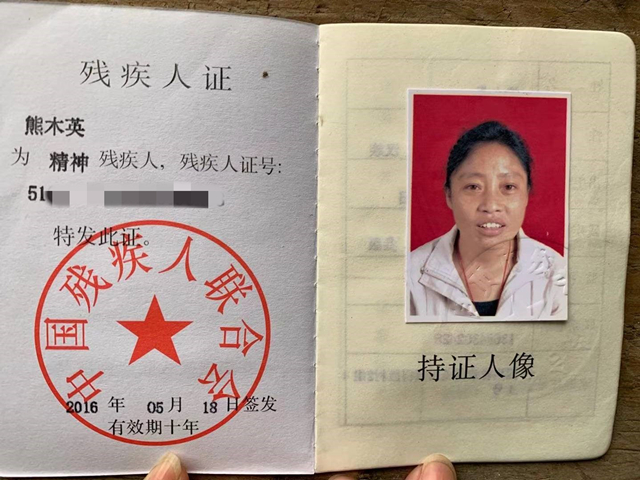 残疾人证
熊木英
为 精神 残疾人，残疾人证号：
51
特发此证。
中国残疾人联合会
2016 年 05 月 18 日签发
有效期十年
持证人像